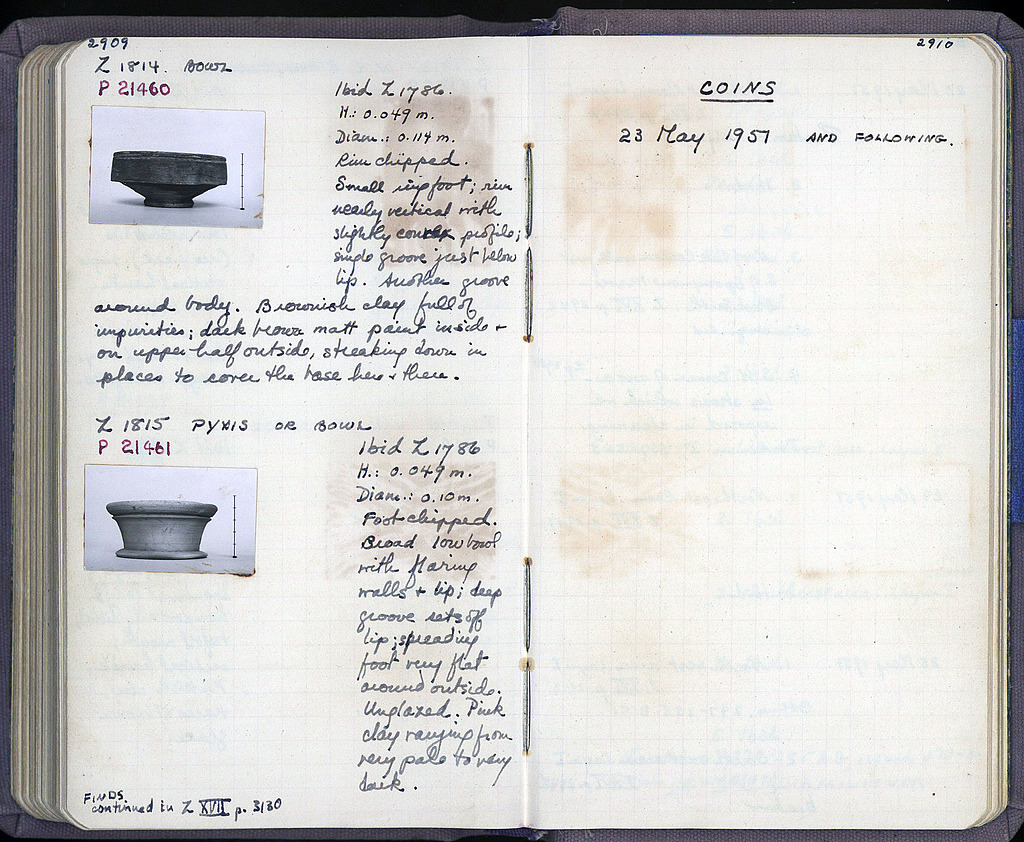 2909
Z 1814. BOWL
P 21460
Ibid Z 1786.
H.: 0.049 m.
Diam.: 0.114 m.
Rim chipped.
Small ring foot; rim
nearly vertical with
slightly convex profile;
single groove just below
lip. Another groove
around body. Brownish clay full of
impurities; dark brown matt paint inside +
on upper half outside, streaking down in
places to cover the base here + there.
Z 1815 PYXIS OR BOWL
P 21461
Ibid Z 1786
H.: 0.049 m.
Diam.: 0.10 m.
Foot chipped.
Broad low bowl
with flaring
walls + lip; deep
groove sets off
lip; spreading
foot very flat
around outside.
Unglazed. Pink
clay ranging from
very pale to very
dark.
FINDS
continued in Z XVII p. 3130
2910
COINS
23 May 1951 AND FOLLOWING.